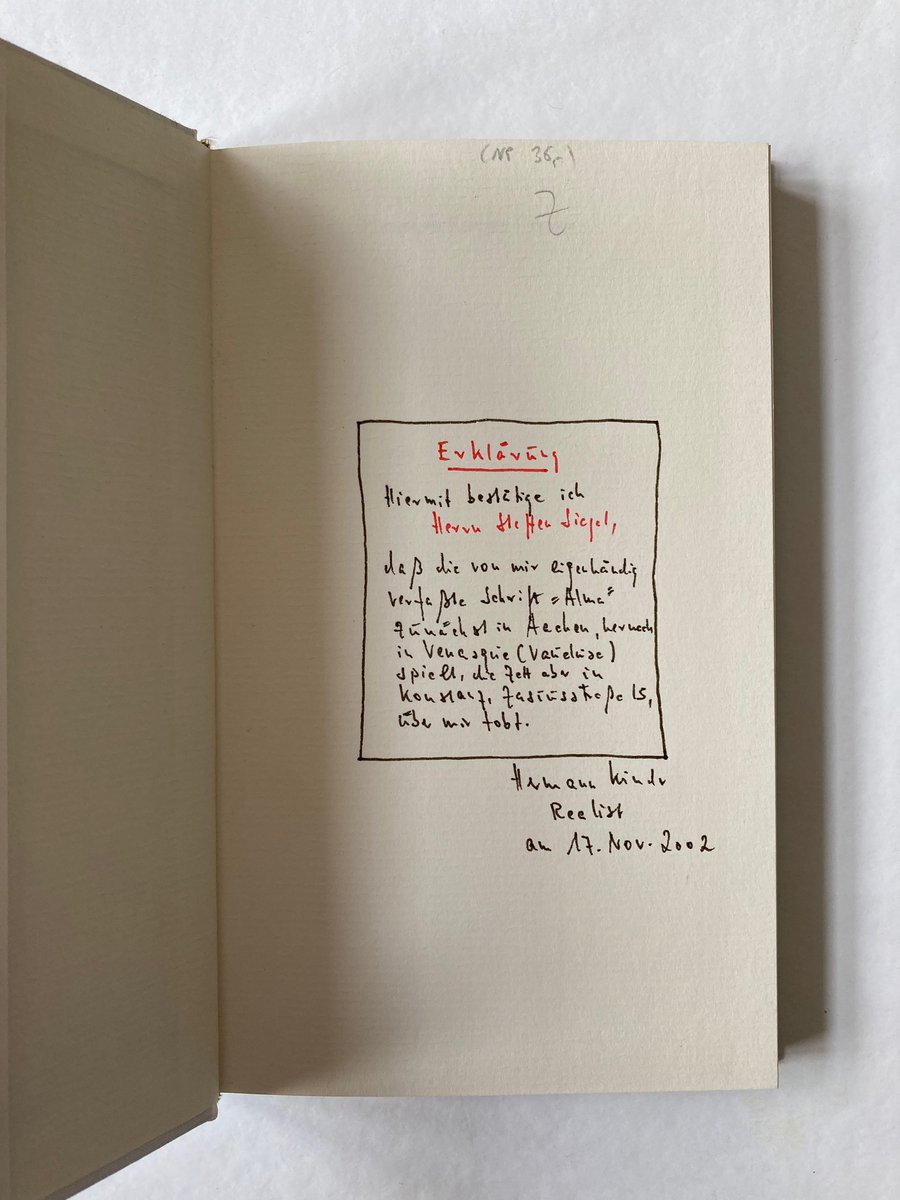 (NP 36,-)
7
Erklärung
Hiermit bestätige ich
Herrn Steffen Siegel,
daß die von mir eigenhändig
verfaßte Schrift "Alma"
zunächst in Aachen, hernach
in Venasque (Vaucluse)
spielt, die Zeit aber in
Konstanz, Zasiusstraße 15,
über mir tobt.
Hermann Kinder
Realist
am 17. Nov. 2002